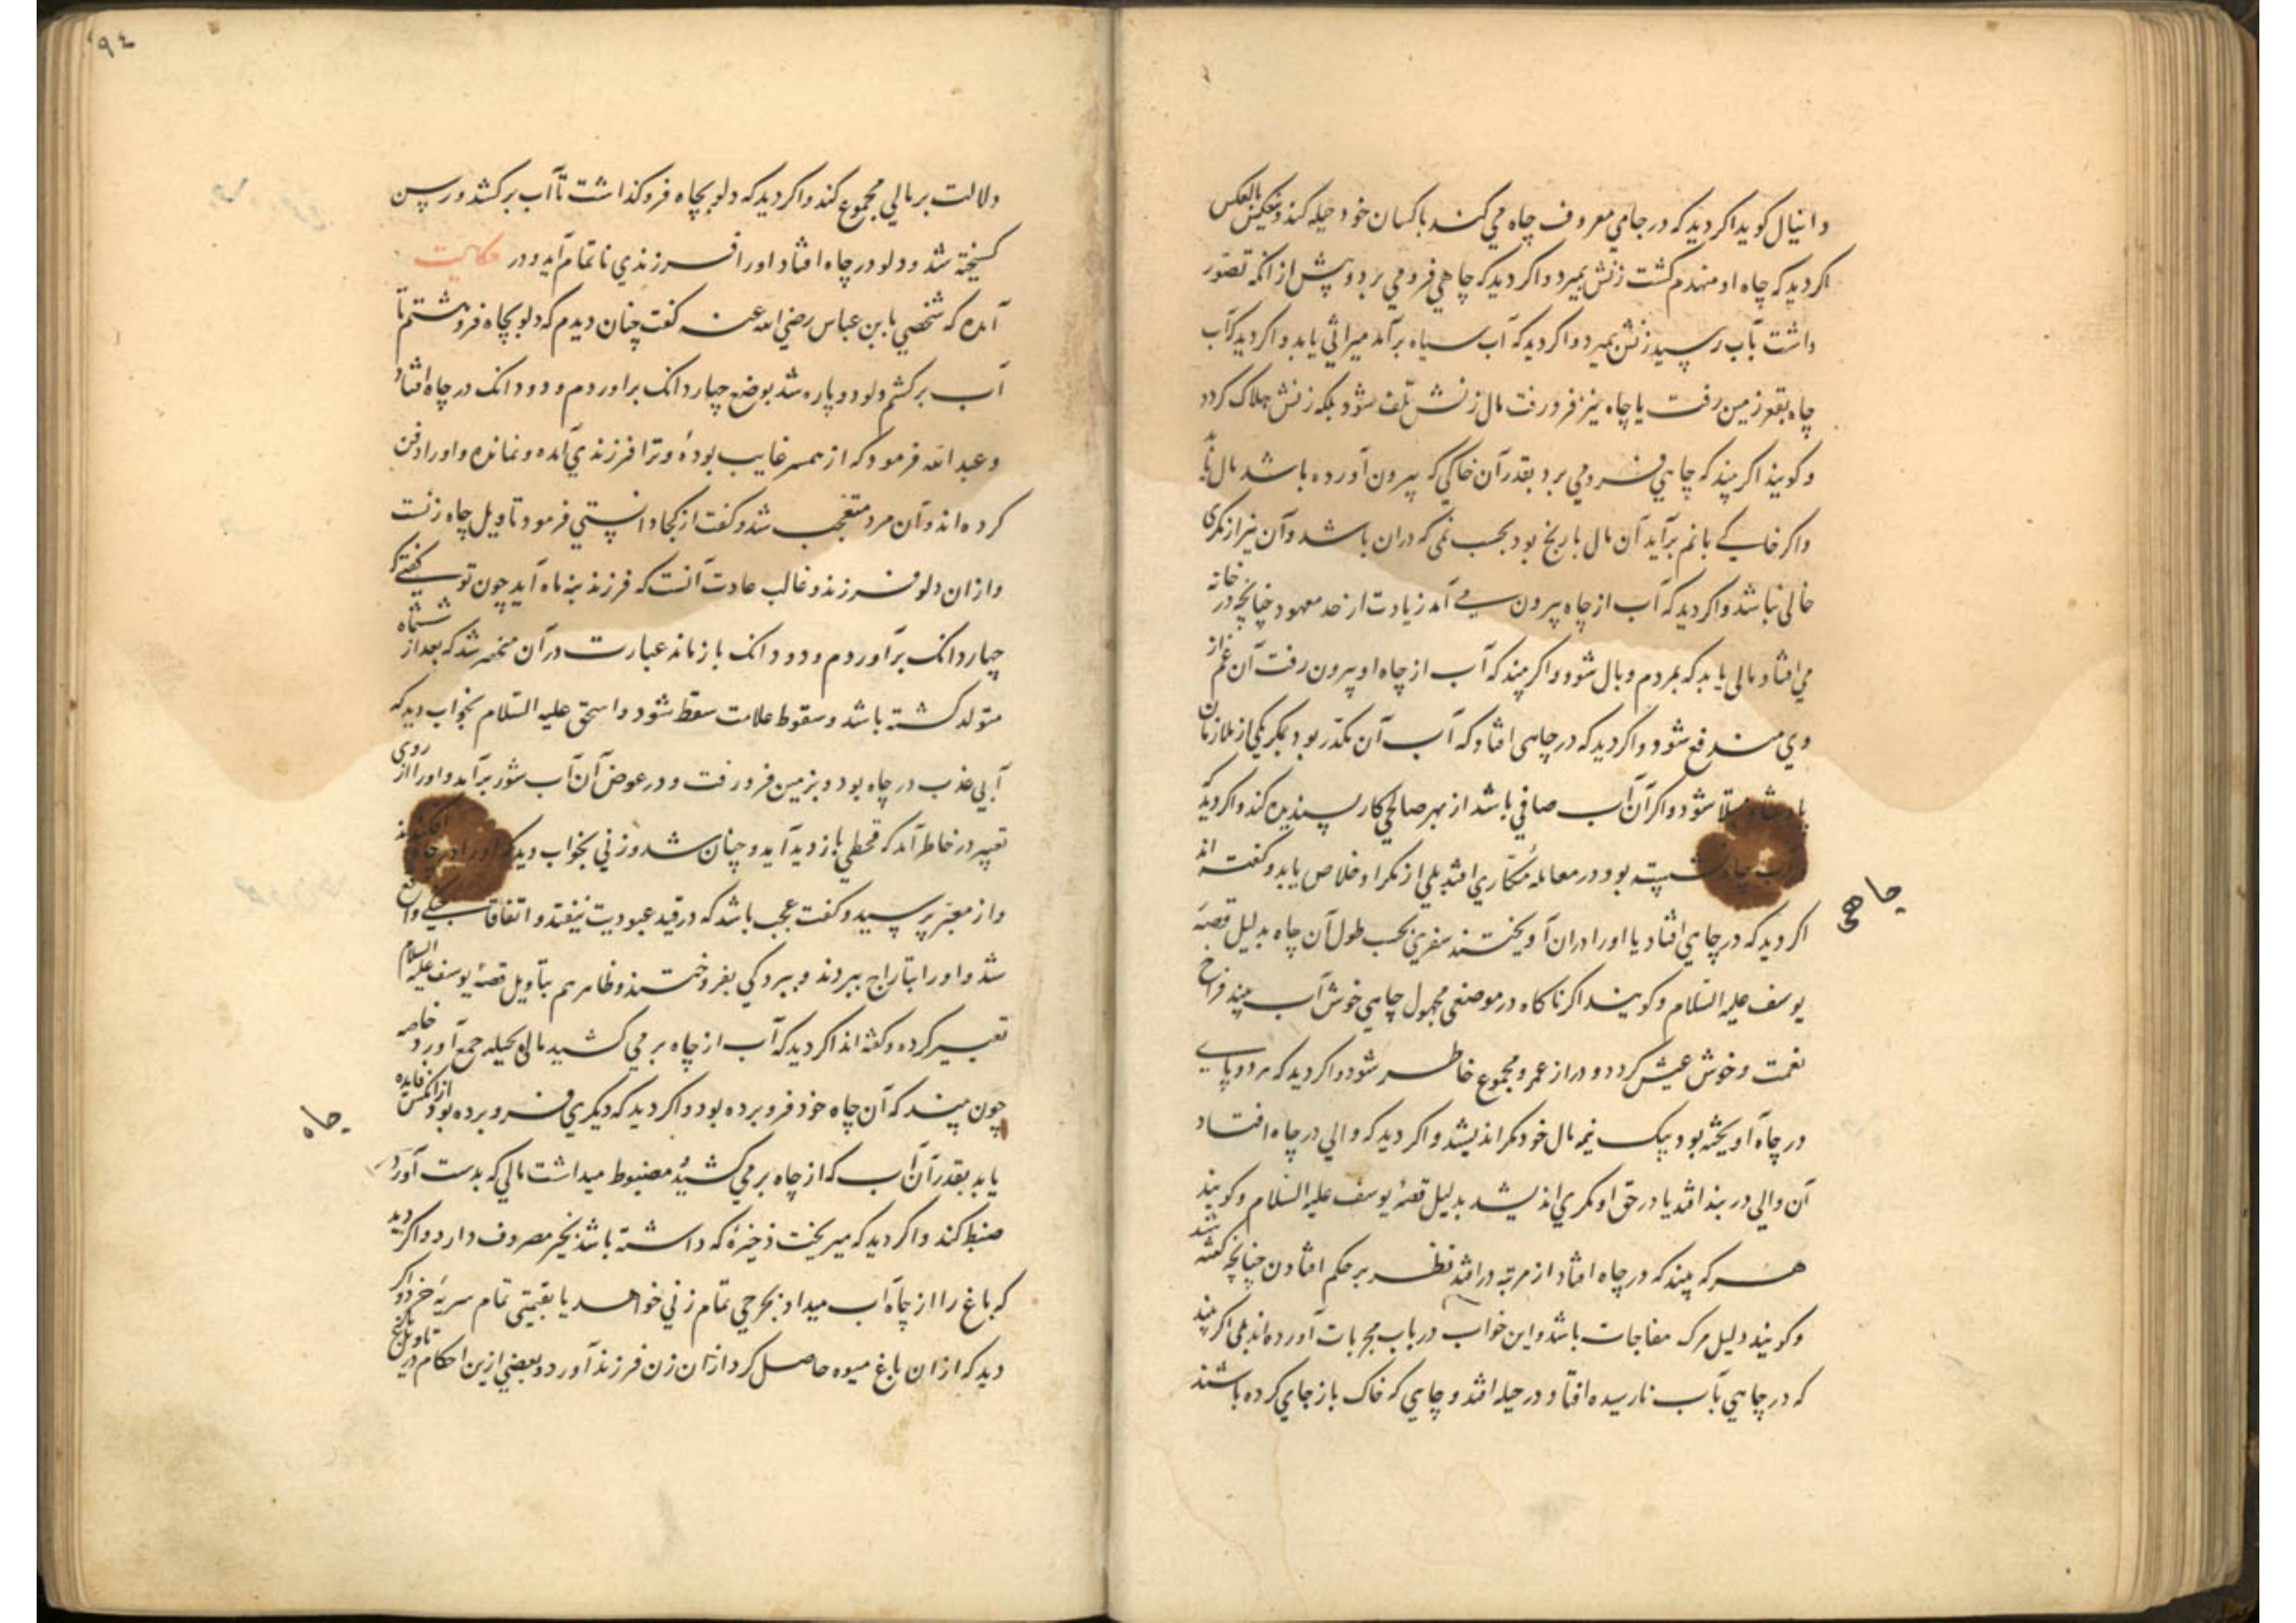 دانیال کوید اکر دید که در جامی معروف چاه می کند با کسان خود حیله کند و بعکس بالعکس
اکر دید که چاه او منهدم کشت زنش بمیرد و اکر دید که چاهی فرو می برد و پیش از انکه تصور
داشت بآب رسید زنش بمیرد و اکر دید که آب سیاه برآمد میراثی یابد و اکر دید که آب
چاه بقعر زمین رفت یا چاه نیز فرو رفت مال زنش تلف شود بلکه زنش هلاک کردد
و کویند اکر بیند که چاهی فرو می برد بقدر آن خاکی که بیرون آورده باشد مال یابد
واکر خاکی بانم برآید آن مال بارنج بود بحسب نمی که دران باشد وآن نیز از مکری
خالی نباشد و اکر دید که آب از چاه بیرون می آمد زیادت از حد معهود چنانچه در خانه
می افتاد مالی یابد که بمردم و بال شود و اکر بیند که آب از چاه او بیرون رفت آن غم از
وی مندفع شود و اکر دید که در چاهی افتاد که آب آن مکدر بود بمکر یکی از ملازمان
پادشاه مبتلا شود و اکر آن آب صافی باشد از بهر صالحی کار پسندیده کند و اکر دید که
بر لب چاه نشسته بود در معامله مکاری افتد بلی از مکر او خلاص یابد و کفته اند
چاهی
اکر دید که در چاهی افتاد یا او را دران آویختند سفری بحسب طول آن چاه بدلیل قصه
یوسف علیه السلام و کویند اکر ناکاه در موضعی مجهول چاهی خوش آب بیند فراخ
نعمت و خوش عیش کردد و دراز عمر و مجموع خاطر شود و اکر دید که هر دو پای
در چاه آویخته بود بیک نیمه مال خود مکر اندیشد و اکر دید که والی در چاه افتاد
آن والی در بند افتد یا در حق او مکری اندیشد بدلیل قصه یوسف علیه السلام و کویند
هر که بیند که در چاه افتاد از مرتبه در افتد نظر بر حکم افتادن چنانچه کفته شد
و کویند دلیل مرک مفاجات باشد و این خواب در باب مجربات آورده اند بلی اکر بیند
که در چاهی بآب نارسیده افتاد در حیله افتد و چاهی که خاک باز جای کرده باشند
۹٤
دلالت بر مالی مجموع کند و اکر دید که دلو بچاه فرو کذاشت تا آب برکشد و رسن
کسیخته شد و دلو در چاه افتاد او را فرزندی ناتمام آید و در حکایت
آمده که شخصی با ابن عباس رضی الله عنه کفت چنان دیدم که دلو بچاه فرو هشتم تا
آب برکشم دلو دو پاره شد بوضع چهار دانک براوردم و دو دانک در چاه افتاد
و عبد الله فرمود که از همسر غایب بودهٔ و ترا فرزندی آمده و نمانده و او را دفن
کرده اند و آن مرد متعجب شد و کفت از کجا دانستی فرمود تاویل چاه زنست
و از ان دلو فرزند و غالب عادت آنست که فرزند بنه ماه آید چون تو کفتی که
چهار دانک برآوردم و دو دانک باز ماند عبارت در آن منحصر شد که بعد از ششماه
متولد کشته باشد و سقوط علامت سقط شود و اسحق علیه السلام بخواب دید که
آبی عذب در چاه بود و بزمین فرو رفت و در عوض آن آب شور برآمد و او را از روی
تعبیر در خاطر آمد که قحطی بازدید آید و چنان شد و زنی بخواب دید که او را در چاه افکندند
و از معبر پرسید و کفت عجب باشد که در قید عبودیت نیفتد و اتفاقا سبیکی واقع
شد و او را بتاراج ببردند و ببردکی بفروختند و ظاهر هم بتاویل قصهٔ یوسف علیه السلام
تعبیر کرده و کفته اند اکر دید که آب از چاه بر می کشید مالی بحیله جمع آورد خاصه
چون بیند که آن چاه خود فرو برده بود و اکر دید که دیکری فرو برده بود از انکس فایده
چاه
یابد بقدر آن آب که از چاه بر می کشید و مضبوط میداشت مالی که بدست آورد
ضبط کند و اکر دید که میریخت ذخیرهٔ که داشته باشد بخیر مصروف دارد و اکر دید
که باغ را از چاه آب میداد بخرجی تمام زنی خواهد یا بقیمتی تمام سریهٔ خرد و اکر
دید که از ان باغ میوه حاصل کرد از ان زن فرزند آورد و بعضی ازین احکام در تاویل